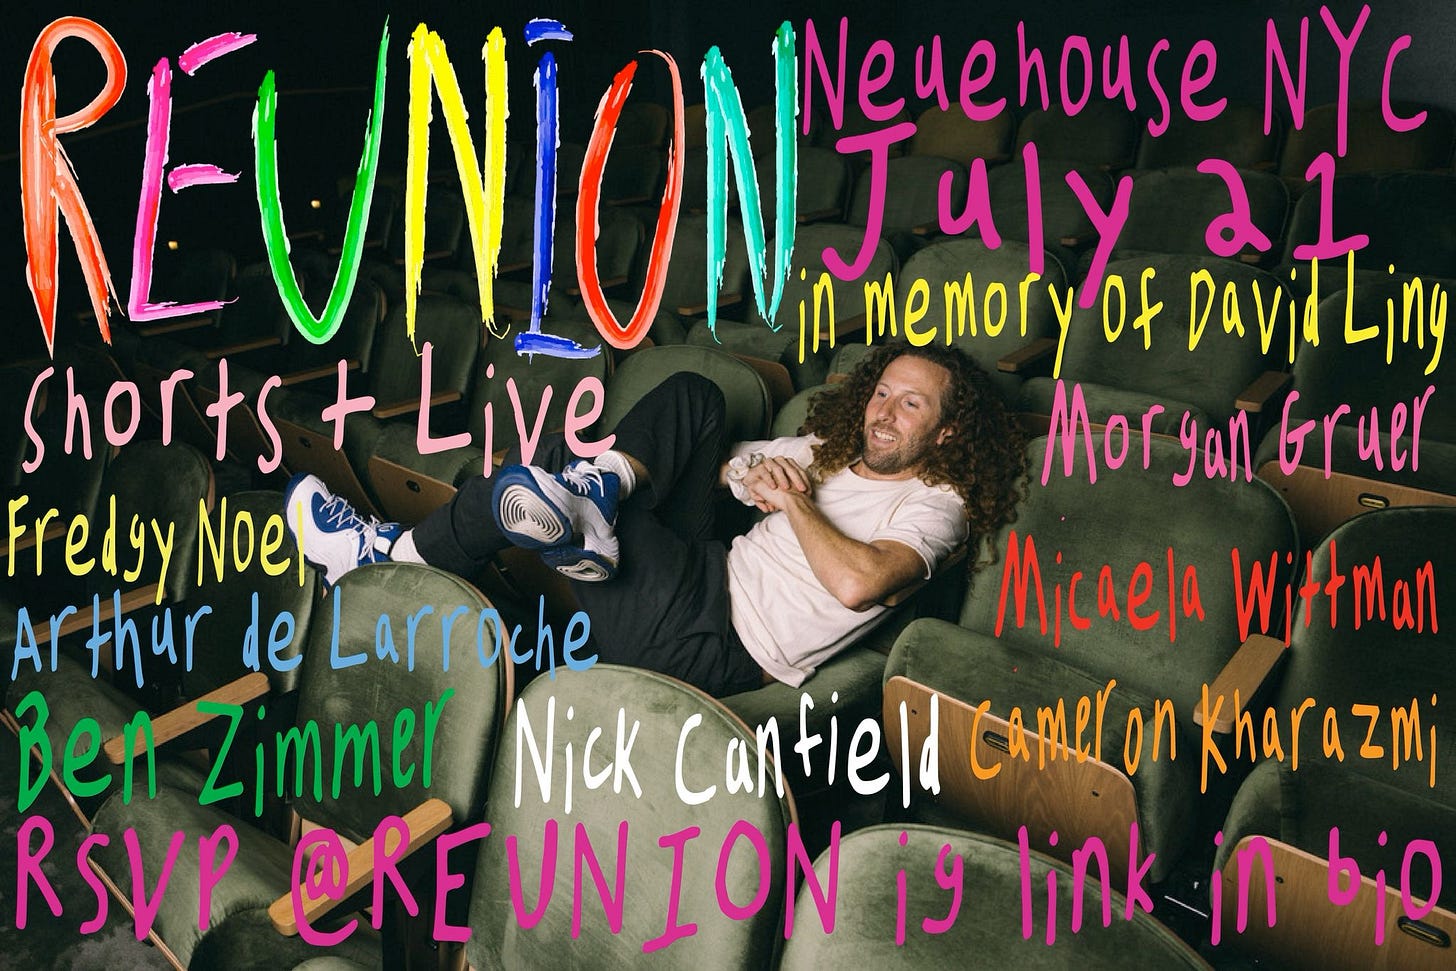 REUNION
Neuehouse NYC
July 21
in memory of David Ling
shorts + Live
Morgan Gruer
Fredgy Noel
Micaela Wittman
Arthur de Larroche
Ben Zimmer
Nick Canfield
Cameron Kharazmi
RSVP @REUNION ig link in bio